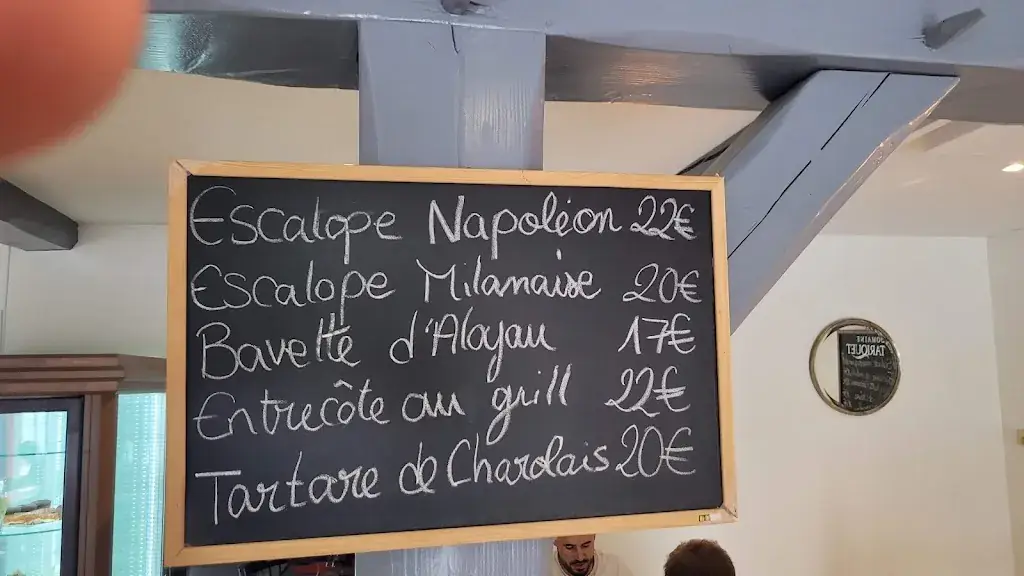 Escalope Napoléon 22€
Escalope Milanaise 20€
Bavette d'Aloyau 17€
Entrecôte au grill 22€
Tartare de Charolais 20€
DOMAINE
TARIQUET